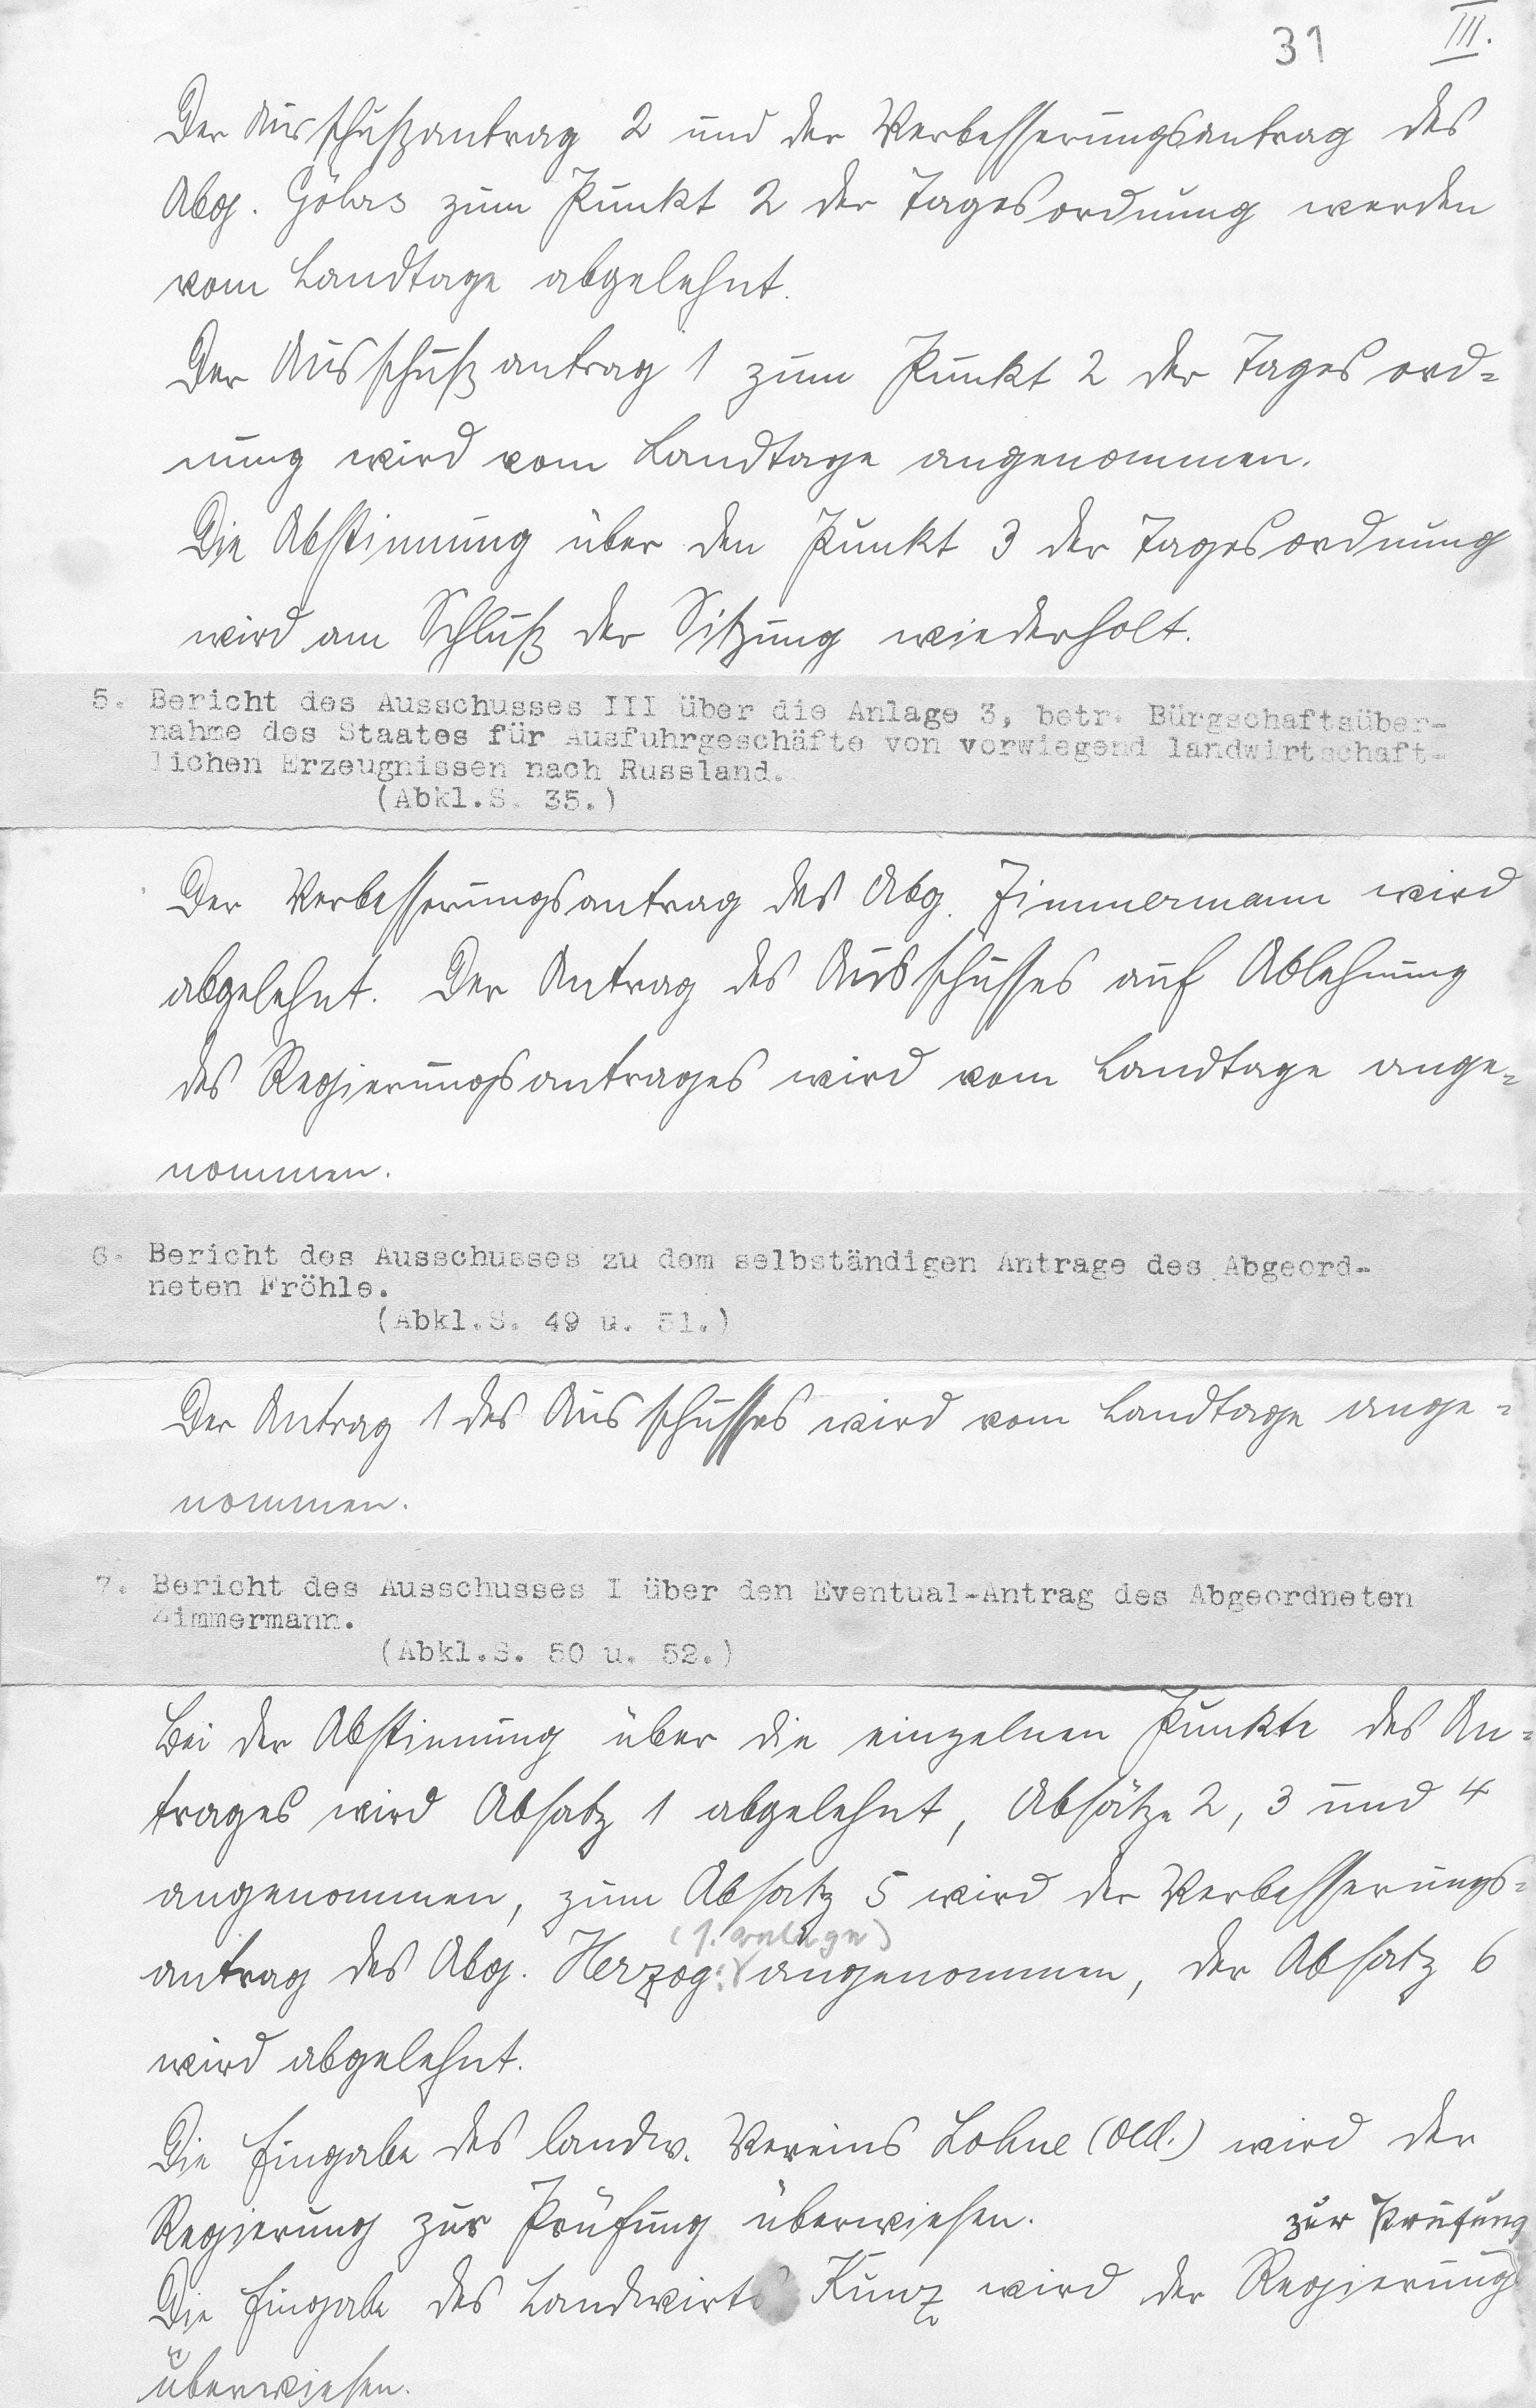 31 III.
Der Ausschußantrag 2 und der Verbesserungsantrag des
Abg. Göhrs zum Punkt 2 der Tagesordnung werden
vom Landtage abgelehnt.
Der Ausschußantrag 1 zum Punkt 2 der Tagesord=
nung wird vom Landtage angenommen.
Die Abstimmung über den Punkt 3 der Tagesordnung
wird am Schluß der Sitzung wiederholt.
5. Bericht des Ausschusses III über die Anlage 3, betr. Bürgschaftsüber-
nahme des Staates für Ausfuhrgeschäfte von vorwiegend landwirtschaft-
lichen Erzeugnissen nach Russland.
(Abkl.S. 35.)
Der Verbesserungsantrag des Abg. Zimmermann wird
abgelehnt. Der Antrag des Ausschusses auf Ablehnung
des Regierungsantrages wird vom Landtage ange=
nommen.
6. Bericht des Ausschusses zu dem selbständigen Antrage des Abgeord-
neten Fröhle.
(Abkl.S. 49 u. 51.)
Der Antrag 1 des Ausschusses wird vom Landtage ange=
nommen.
7. Bericht des Ausschusses I über den Eventual-Antrag des Abgeordneten
Zimmermann.
(Abkl.S. 50 u. 52.)
Bei der Abstimmung über die einzelnen Punkte des An=
trages wird Absatz 1 abgelehnt, Absätze 2, 3 und 4
angenommen, zum Absatz 5 wird der Verbesserungs=
(s. Anlage)
antrag des Abg. Herzog angenommen, der Absatz 6
wird abgelehnt.
Die Eingabe des landw. Vereins Lohne (Old.) wird der
Regierung zur Prüfung überwiesen.
zur Prüfung
Die Eingabe des Landwirts Kunz wird der Regierung
überwiesen.